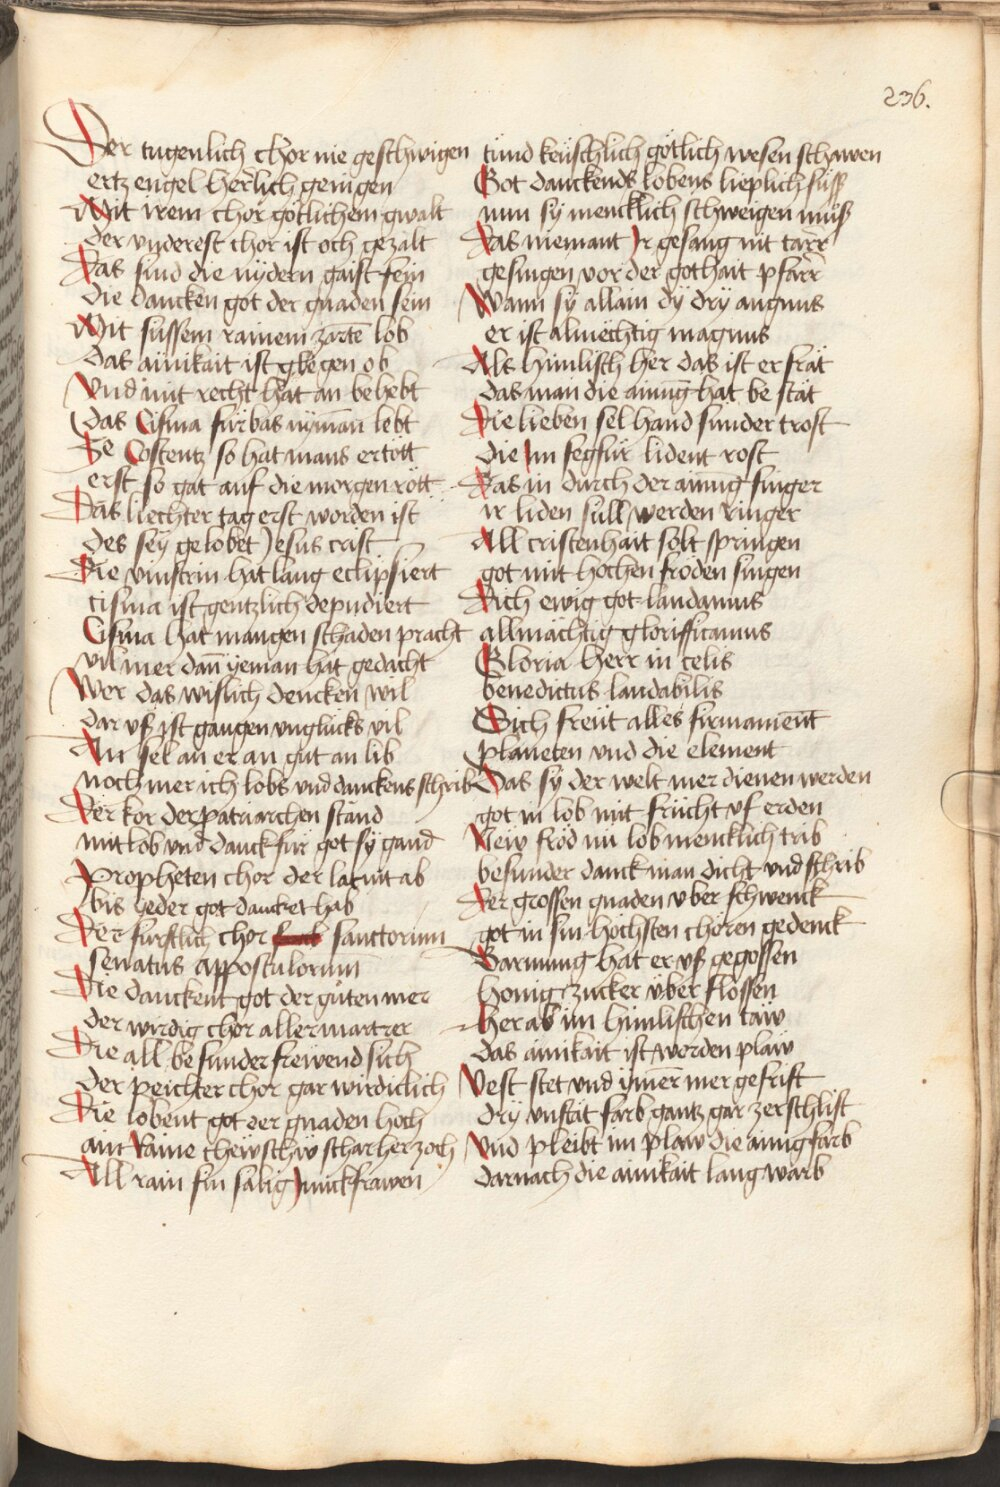 236.
Der tugenlich chor nie geschwigen
ertz engel herlich genigen
Mit irem chor götlichem gwalt
der vnderest chor ist och gezalt
Das sind die nydern gaist fein
die dancken got der gnaden sein
Mit sussem rainem zarte lob
das ainikait ist glegen ob
Vnd mit recht hat an behebt
das Cisma fürbas nyman lebt
Ze Costentz so hat mans ertött
erst so gat auf die morgen rött
Das liechter tag erst worden ist
des sey gelobet Jesus crist
Die vinstrin hat lang eclipsiert
cisma ist gentzlich depudiert
Cisma hat mangen schaden pracht
vil mer dan yeman hat gedacht
Wer das wislich dencken wil
dar vß ist gangen vnglücks vil
An sel an er an gut an lib
noch mer ich lobs vnd danckens schrib
Der kor der patriarchen stand
mit lob vnd danck für got sy gand
Propheten chor der lat nit ab
bis yeder got dancket hab
Der furstlich chor sanctorum
senatus appostulorum
Die danckent got der güten mer
der wirdig chor aller martrer
Die all besunder frewend sich
der peichter chor gar wirdiclich
Die lobent got der gnaden hoch
ain Raine chewschw schar herzoch
All rain fin sälig Junckfrawen
tünd keüschlich götlich wesen schawen
Got danckends lobens lieplich süss
nun sy mencklich schweigen müß
Das niemant Jr gesang nit tarr
gesingen vor der gothait pfarr
Wann sy allain dy dry angnus
er ist almechtig magnus
Als himlisch her das ist erfrät
das man die ainung hat bestät
Die lieben sel hand sunder trost
die Im fegfür lident rost
Das in durch der ainung singer
ir liden süll werden ringer
All cristenhait solt springen
got mit hochen fröden singen
Dich ewig got laudamus
allmächtig glorifficamus
Gloria herr in celis
benedictus laudabilis
Sich freüt alles firmament
planeten vnd die element
Das sy der welt mer dienen werden
got in lob mit frücht vf erden
New fröd im lob mencklich trib
besunder danck man dicht vnd schrib
Der grossen gnaden vber schwenck
got in sin höchsten chören gedenck
Barmung hat er vß gegossen
honig zucker über flossen
Her ab im himlischen taw
das ainikait ist worden plaw
Vest stet vnd ymer mer gefrist
dry vnstät farb gantz gar zerschlist
Vnd pleibt im plaw die ainig farb
darnach die ainikait lang warb